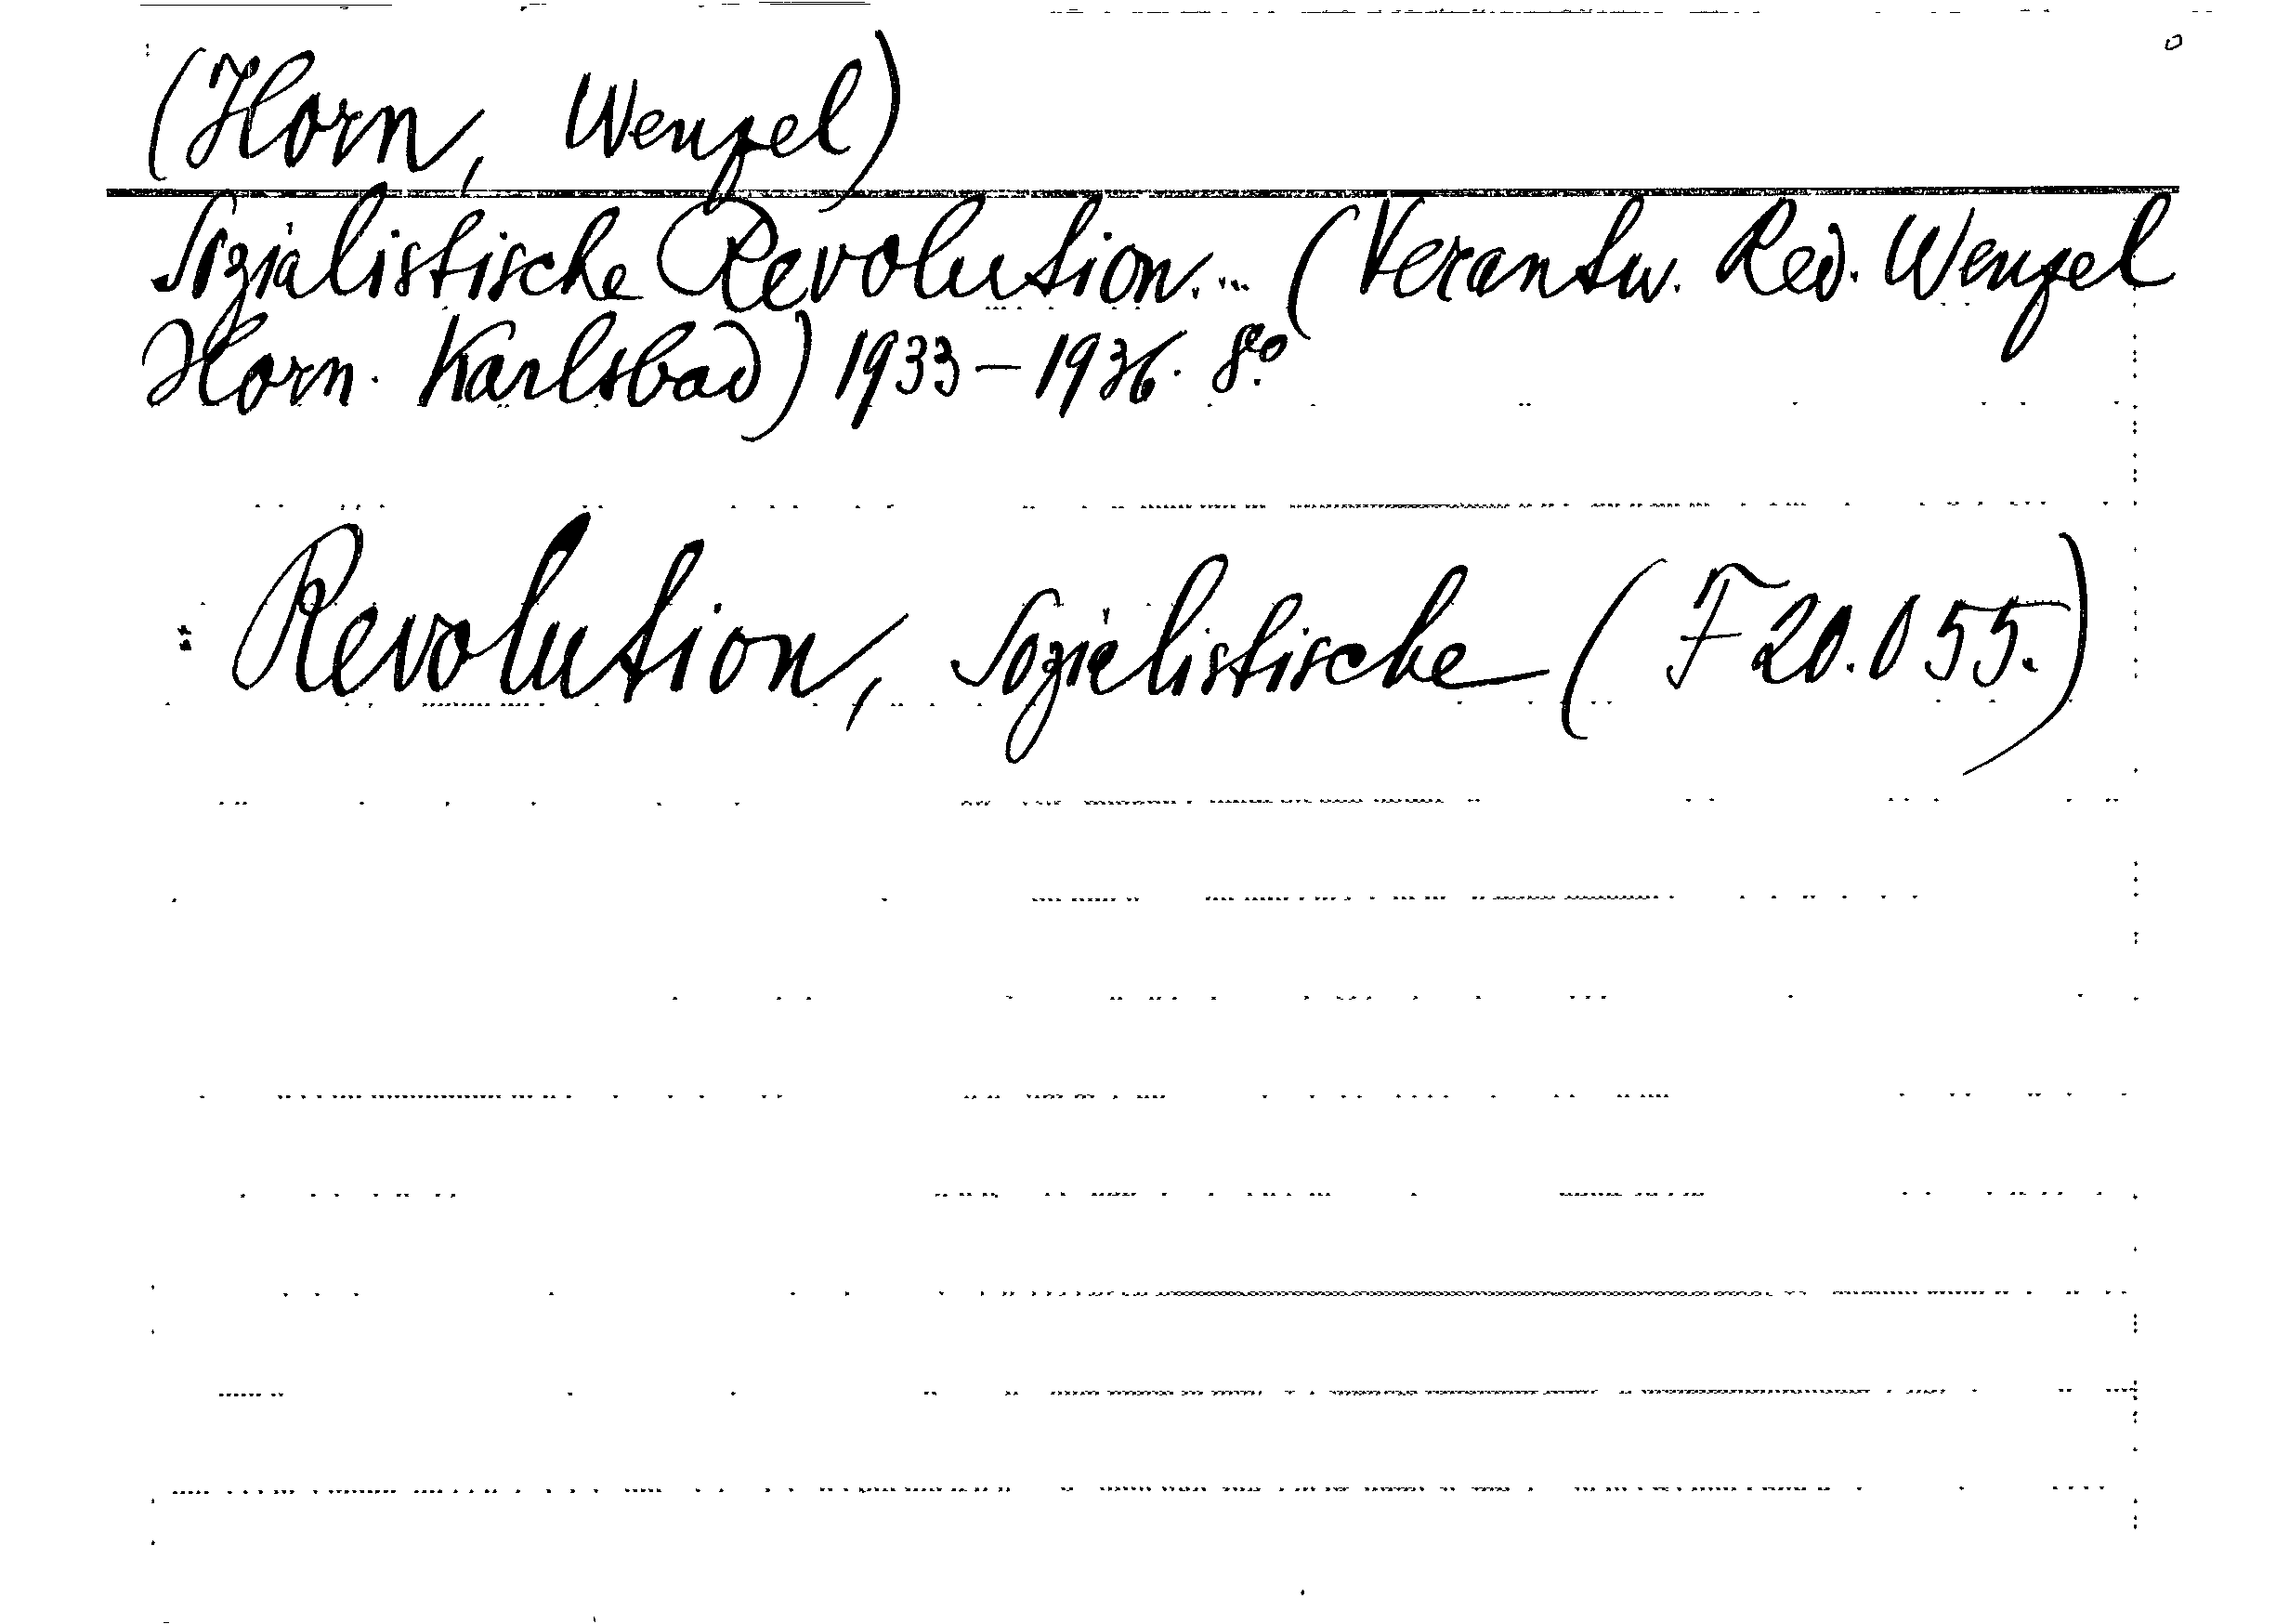 (Horn, Wenzel)
Sozialistische Revolution... (Verantw. Red. Wenzel
Horn. Karlsbad) 1933-1936. 8°.
: Revolution, Sozialistische (F 20.055.)